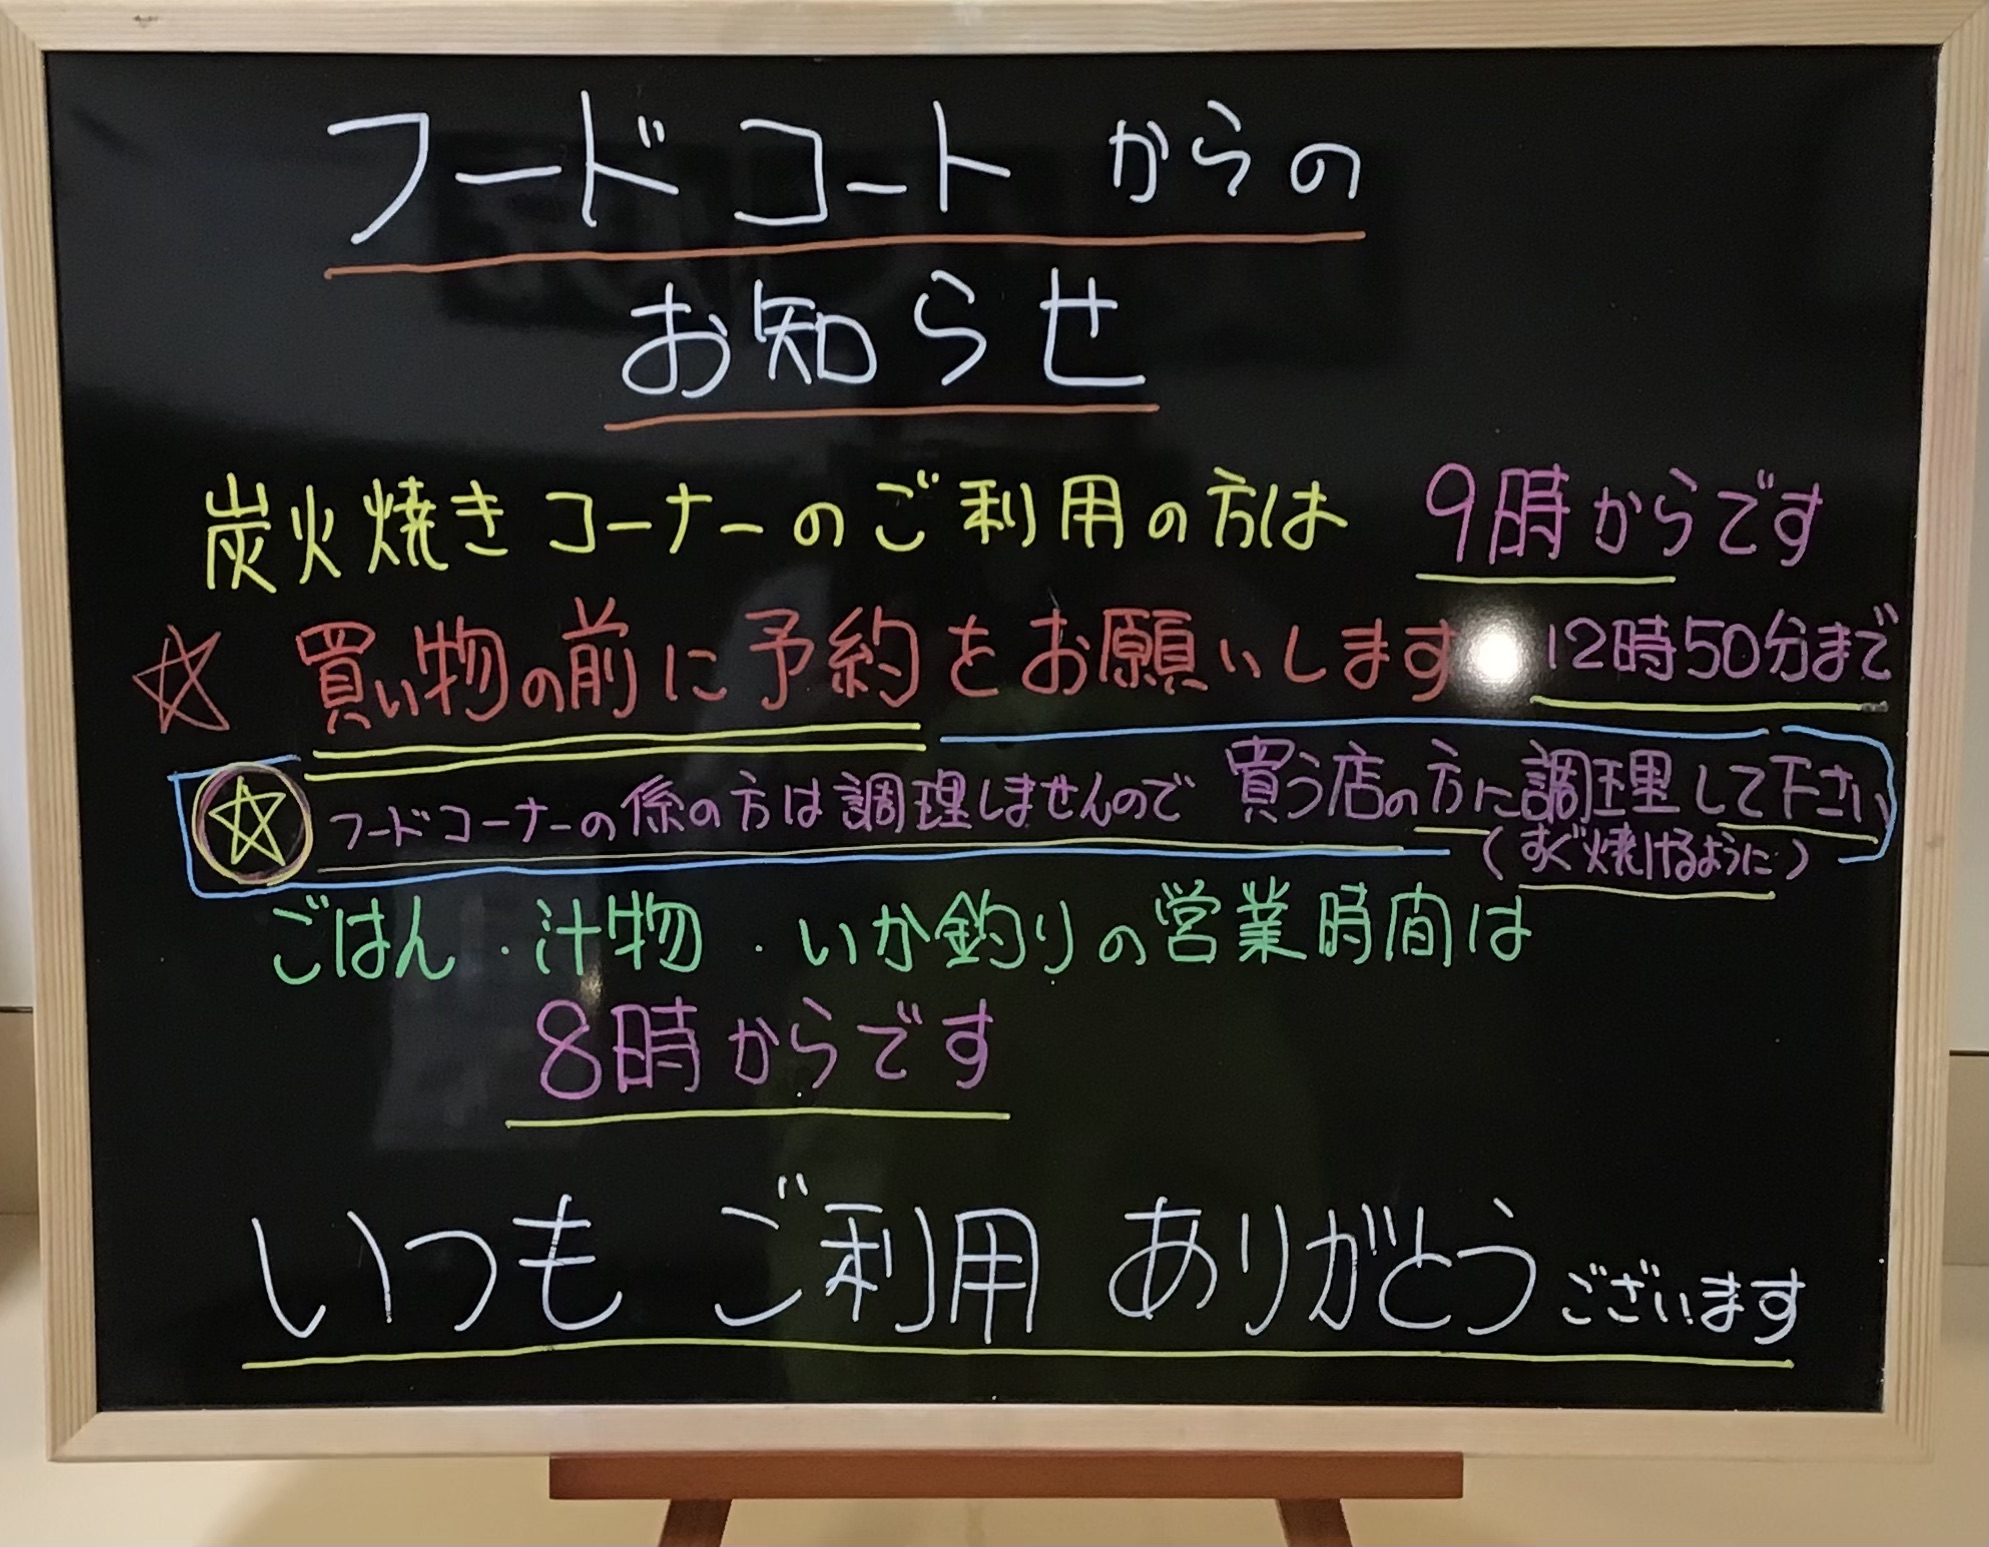 フードコートからの
お知らせ
炭火焼きコーナーのご利用の方は 9時からです
☆ 買い物の前に予約をお願いします 12時50分まで
☆ フードコーナーの係の方は調理しませんので 買う店の方に調理して下さい
(すぐ焼けるように)
ごはん・汁物・いか釣りの営業時間は
8時からです
いつも ご利用 ありがとうございます